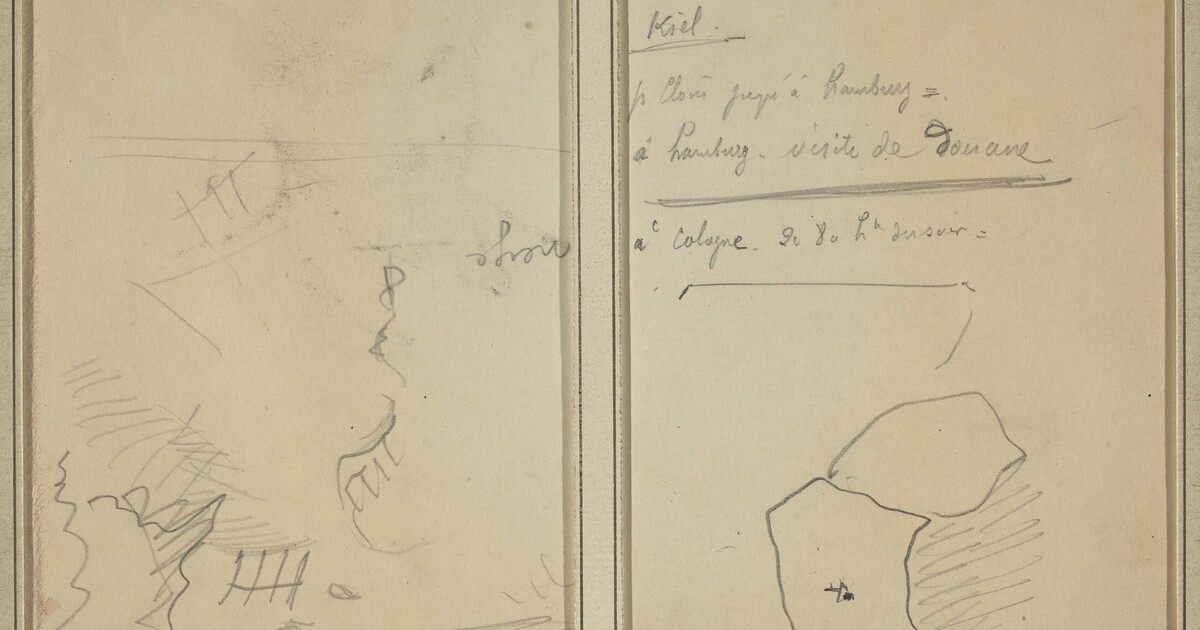 neige
Kiel.
p Clovis jusqu'à hambourg =
à hambourg - visite de Douane
à Cologne - du soir =